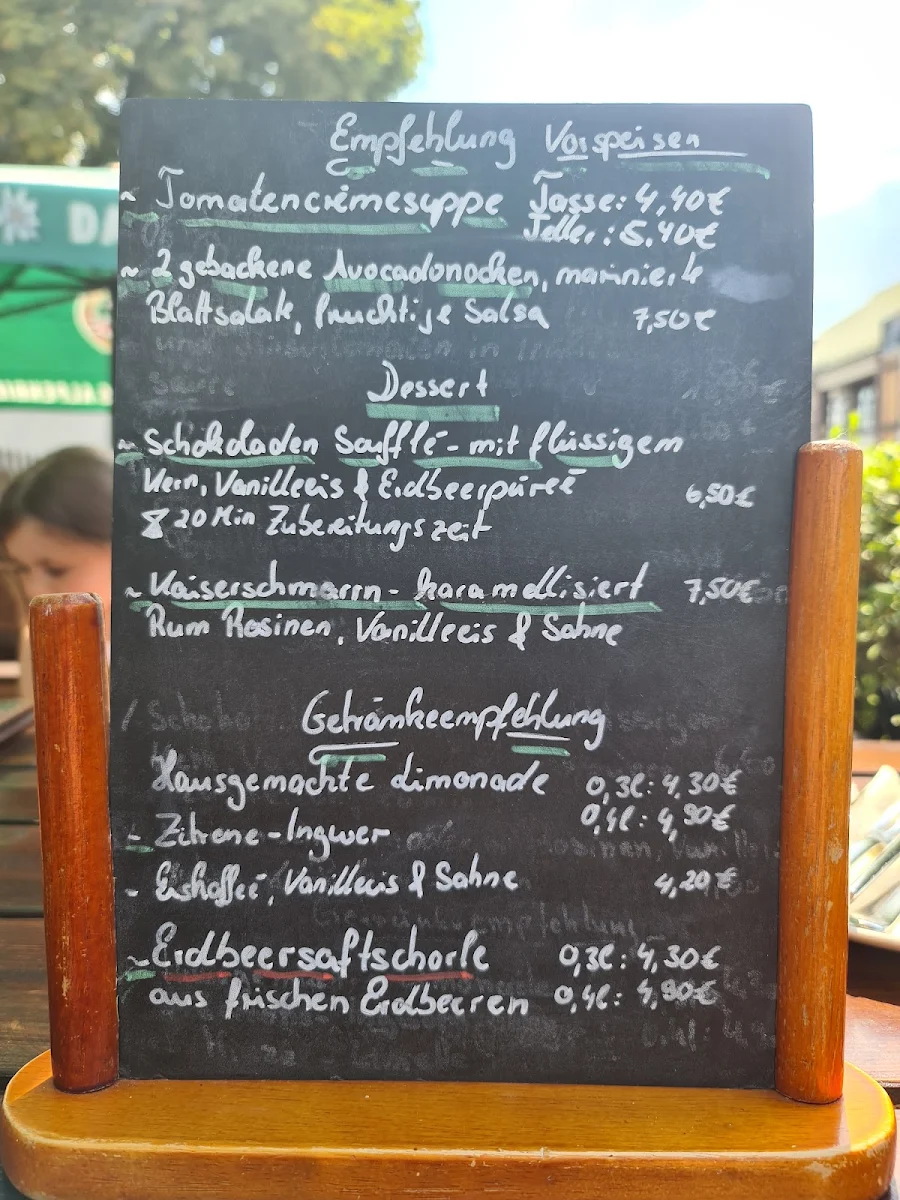 DA
Empfehlung Vorspeisen
~ Tomatencrèmesuppe Tasse: 4,40€
Teller: 5,40€
~ 2 gebackene Avocadonocken, marinierte
Blattsalate, fruchtije Salsa 7,50€
Dessert
~ Schokoladen Soufflé - mit flüssigem
Kern, Vanilleeis & Erdbeerpüree 6,50€
20 Min Zubereitungszeit
~ Kaiserschmarrn - karamellisiert 7,50€
Rum Rosinen, Vanilleeis & Sahne
Getränkeempfehlung
Hausgemachte Limonade 0,3l: 4,30€
0,4l: 4,90€
- Zitrone - Ingwer
- Eiskaffee, Vanilleeis & Sahne 4,20€
~ Erdbeersaftschorle 0,3l: 4,30€
aus frischen Erdbeeren 0,4l: 4,90€